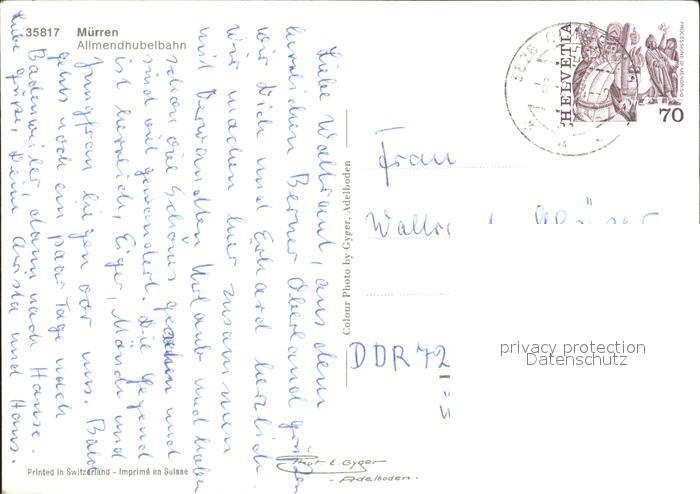 35817 Mürren
Allmendhubelbahn
Liebe Waltraut, aus dem
herrlichen Berner Oberland grüßen
wir Dich und Erhard herzlich.
Wir machen hier zusammen
mit Verwandten Urlaub und haben
schon viel Schönes gesehen und
sind viel gewandert. Die Gegend
ist herrlich, Eiger, Mönch und
Jungfrau liegen vor uns. Bald
geht's noch ein paar Tage nach
Badenweiler, dann nach Hause.
Liebe Grüße, Deine Christa und Hans.
Printed in Switzerland - Imprimé en Suisse
Colour Photo by Gyger, Adelboden
Phot E. Gyger
- Adelboden.
HELVETIA
PROCESSIONE DI MENDRISIO
70
Frau
DDR 72
privacy protection
Datenschutz